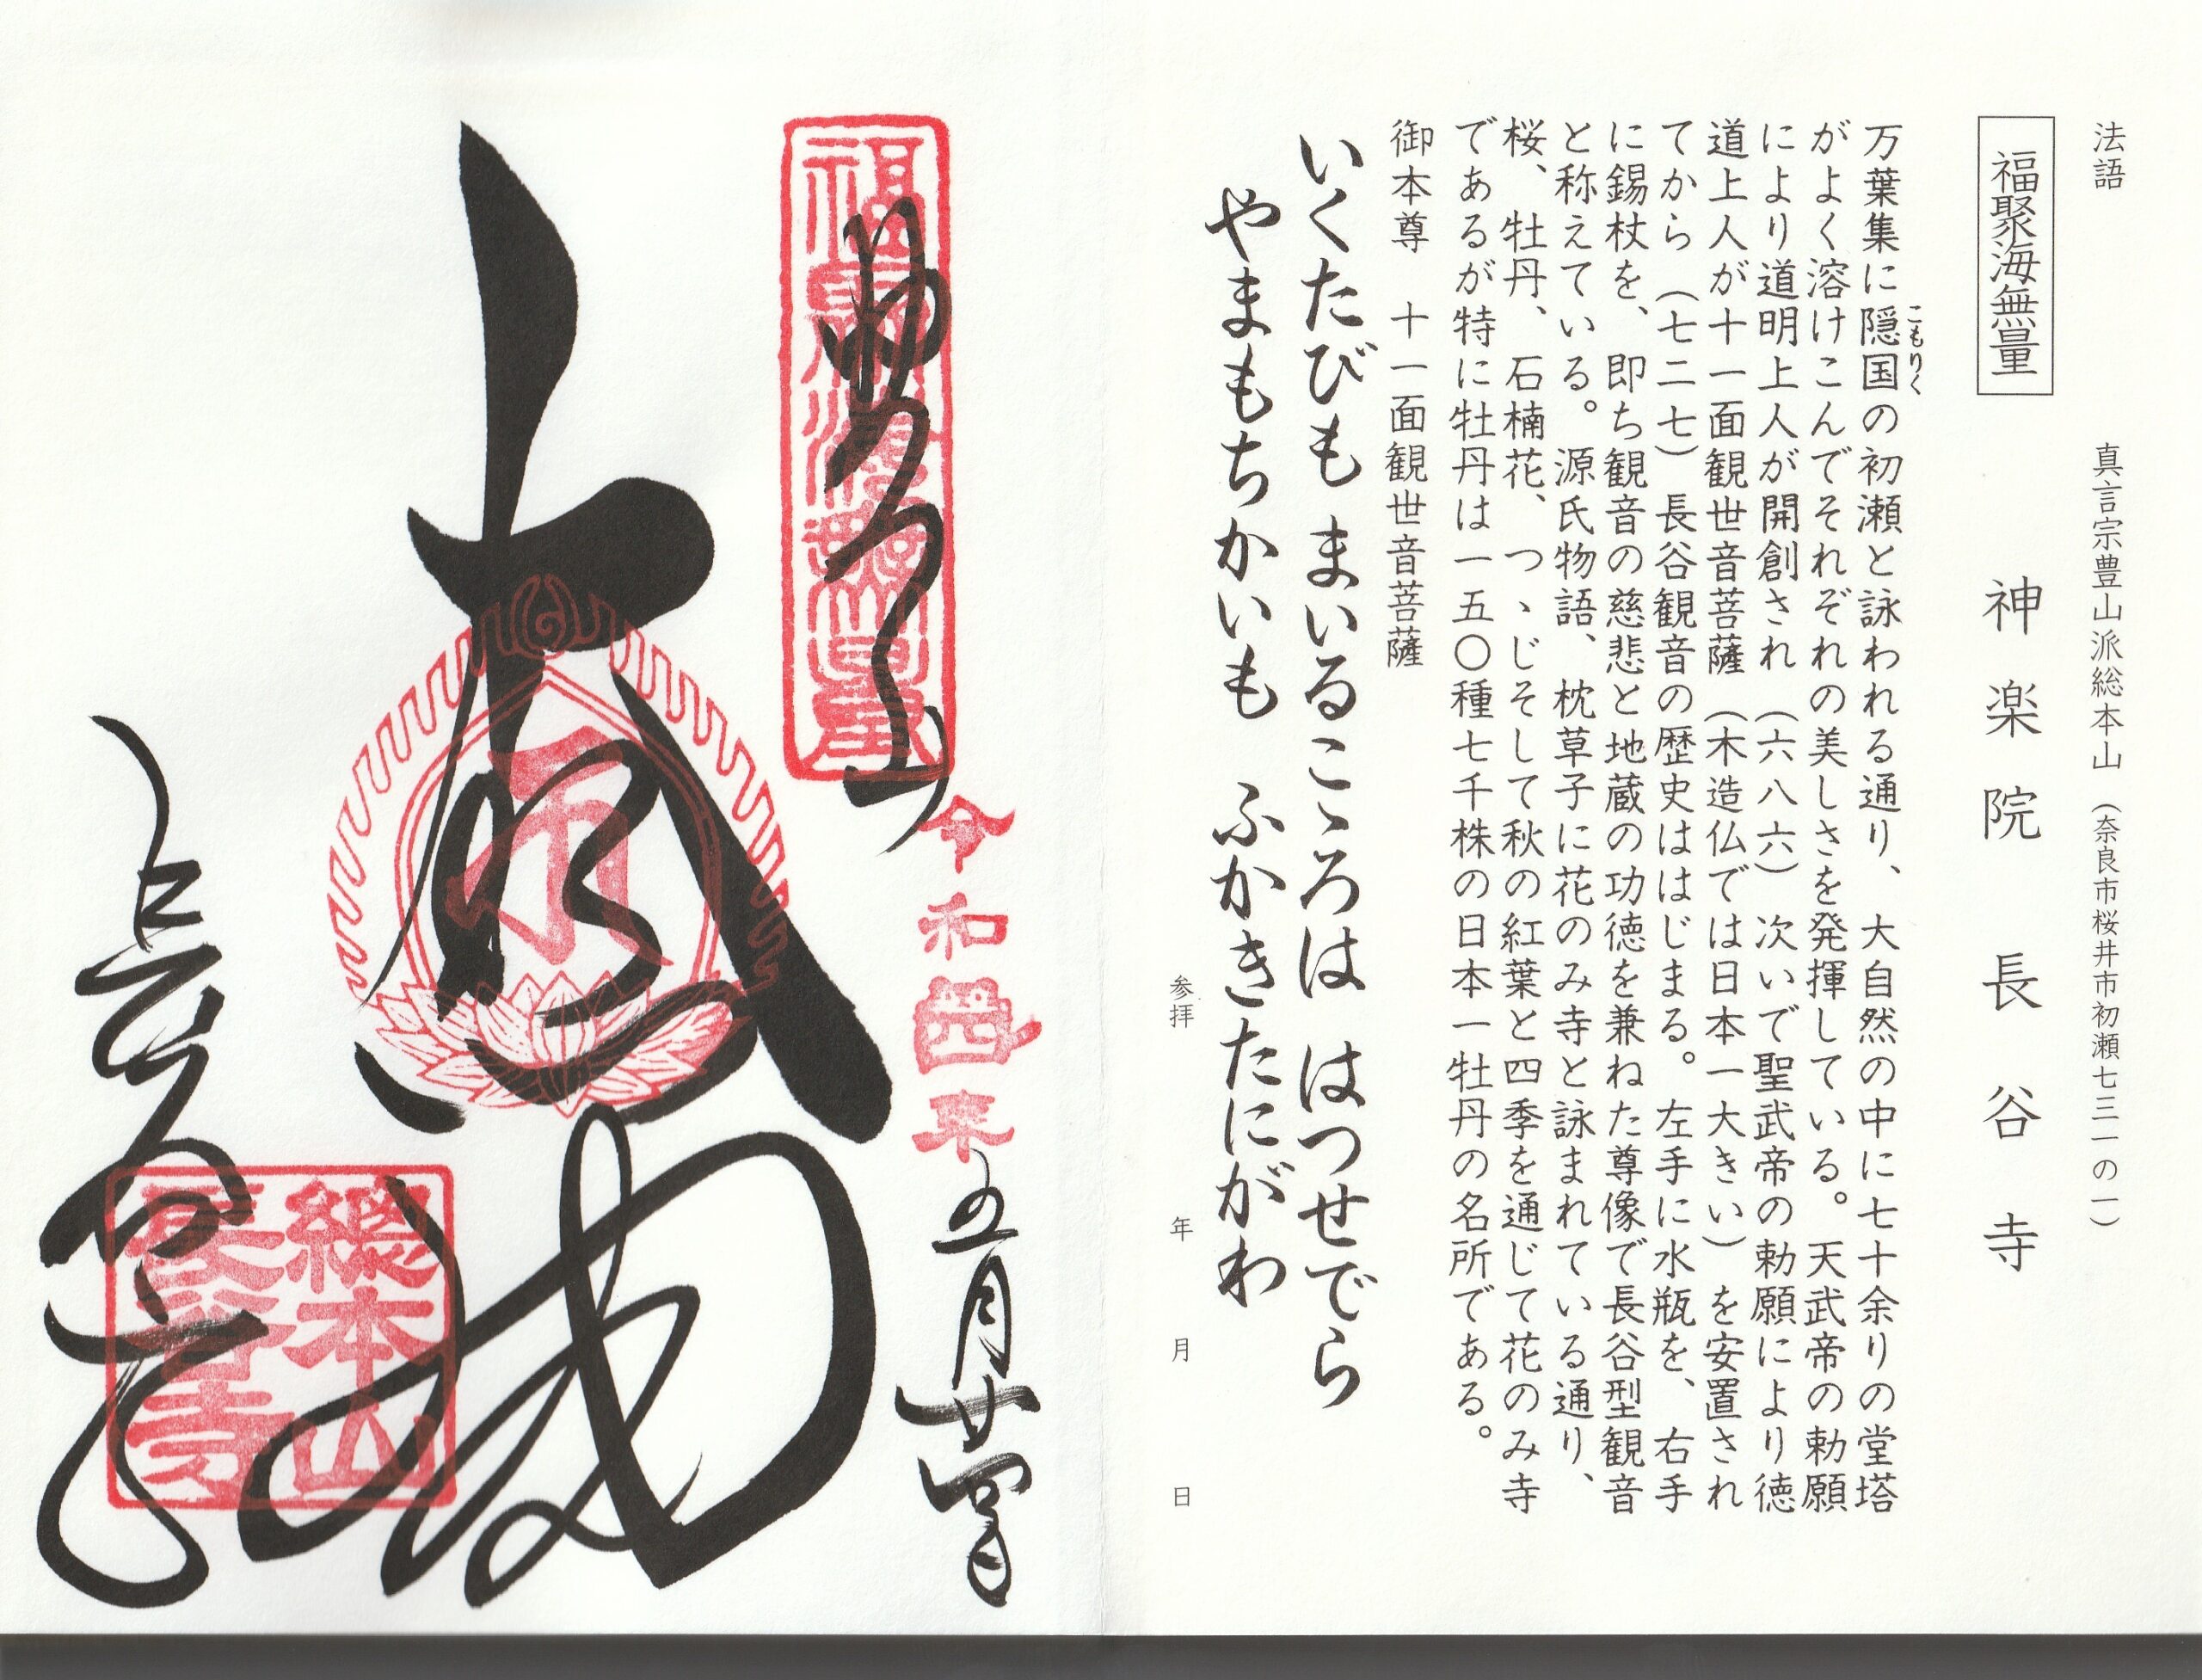 法語
真言宗豊山派総本山(奈良市桜井市初瀬七三一の一)
福聚海無量
神楽院長谷寺
こもりく
万葉集に隠国の初瀬と詠われる通り、大自然の中に七十余りの堂塔
がよく溶けこんでそれぞれの美しさを発揮している。天武帝の勅願
により道明上人が開創され(六八六)次いで聖武帝の勅願により徳
道上人が十一面観世音菩薩(木造仏では日本一大きい)を安置され
てから(七二七)長谷観音の歴史ははじまる。左手に水瓶を、右手
に錫杖を、即ち観音の慈悲と地蔵の功徳を兼ねた尊像で長谷型観音
と称えている。源氏物語、枕草子に花のみ寺と詠まれている通り、
桜、牡丹、石楠花、つゝじそして秋の紅葉と四季を通じて花のみ寺
であるが特に牡丹は一五〇種七千株の日本一牡丹の名所である。
御本尊 十一面観世音菩薩
いくたびも まいるこゝろは はつせでら
やまもちかいも ふかきたにがわ
参拝 年 月 日
福聚海無量
令和四年五月廿四日
大悲閣
総本山
長谷寺
長谷寺